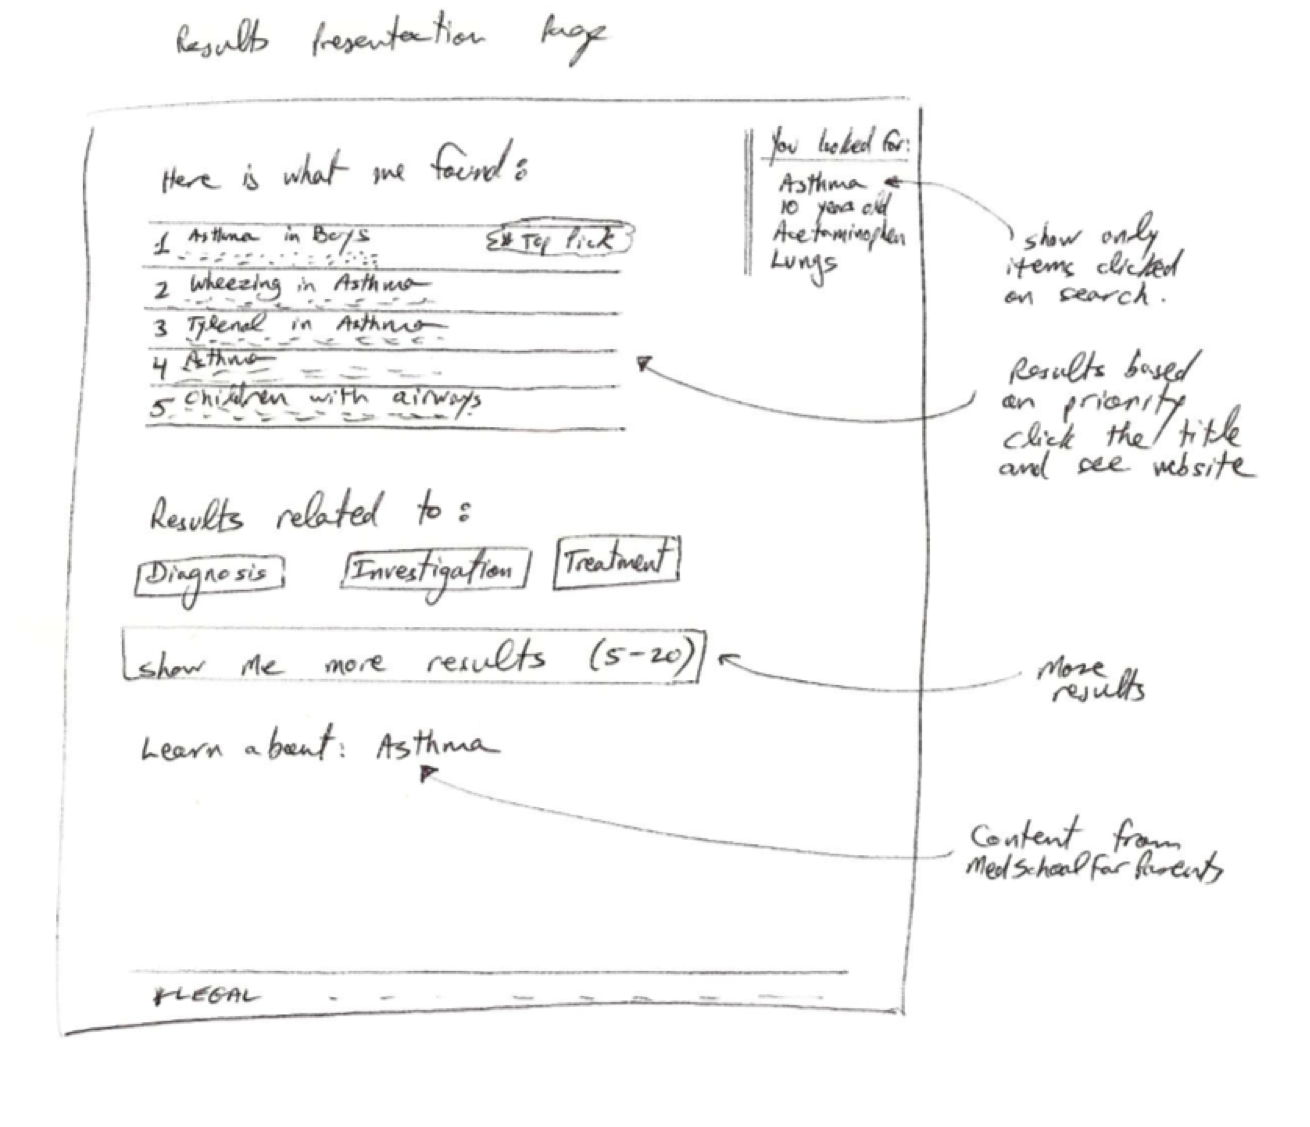 Results Presentation Page
Here is what we found:
1 Asthma in Boys
Top Pick
2 Wheezing in Asthma
3 Tylenol in Asthma
4 Asthma
5 Children with airways
You looked for:
Asthma
10 years old
Acetaminophen
Lungs
show only
items clicked
on search.
Results based
on priority
click the title
and see website
Results related to:
Diagnosis
Investigation
Treatment
show me more results (5-20)
More
results
Learn about: Asthma
Content from
MedSchoolForParents
*LEGAL